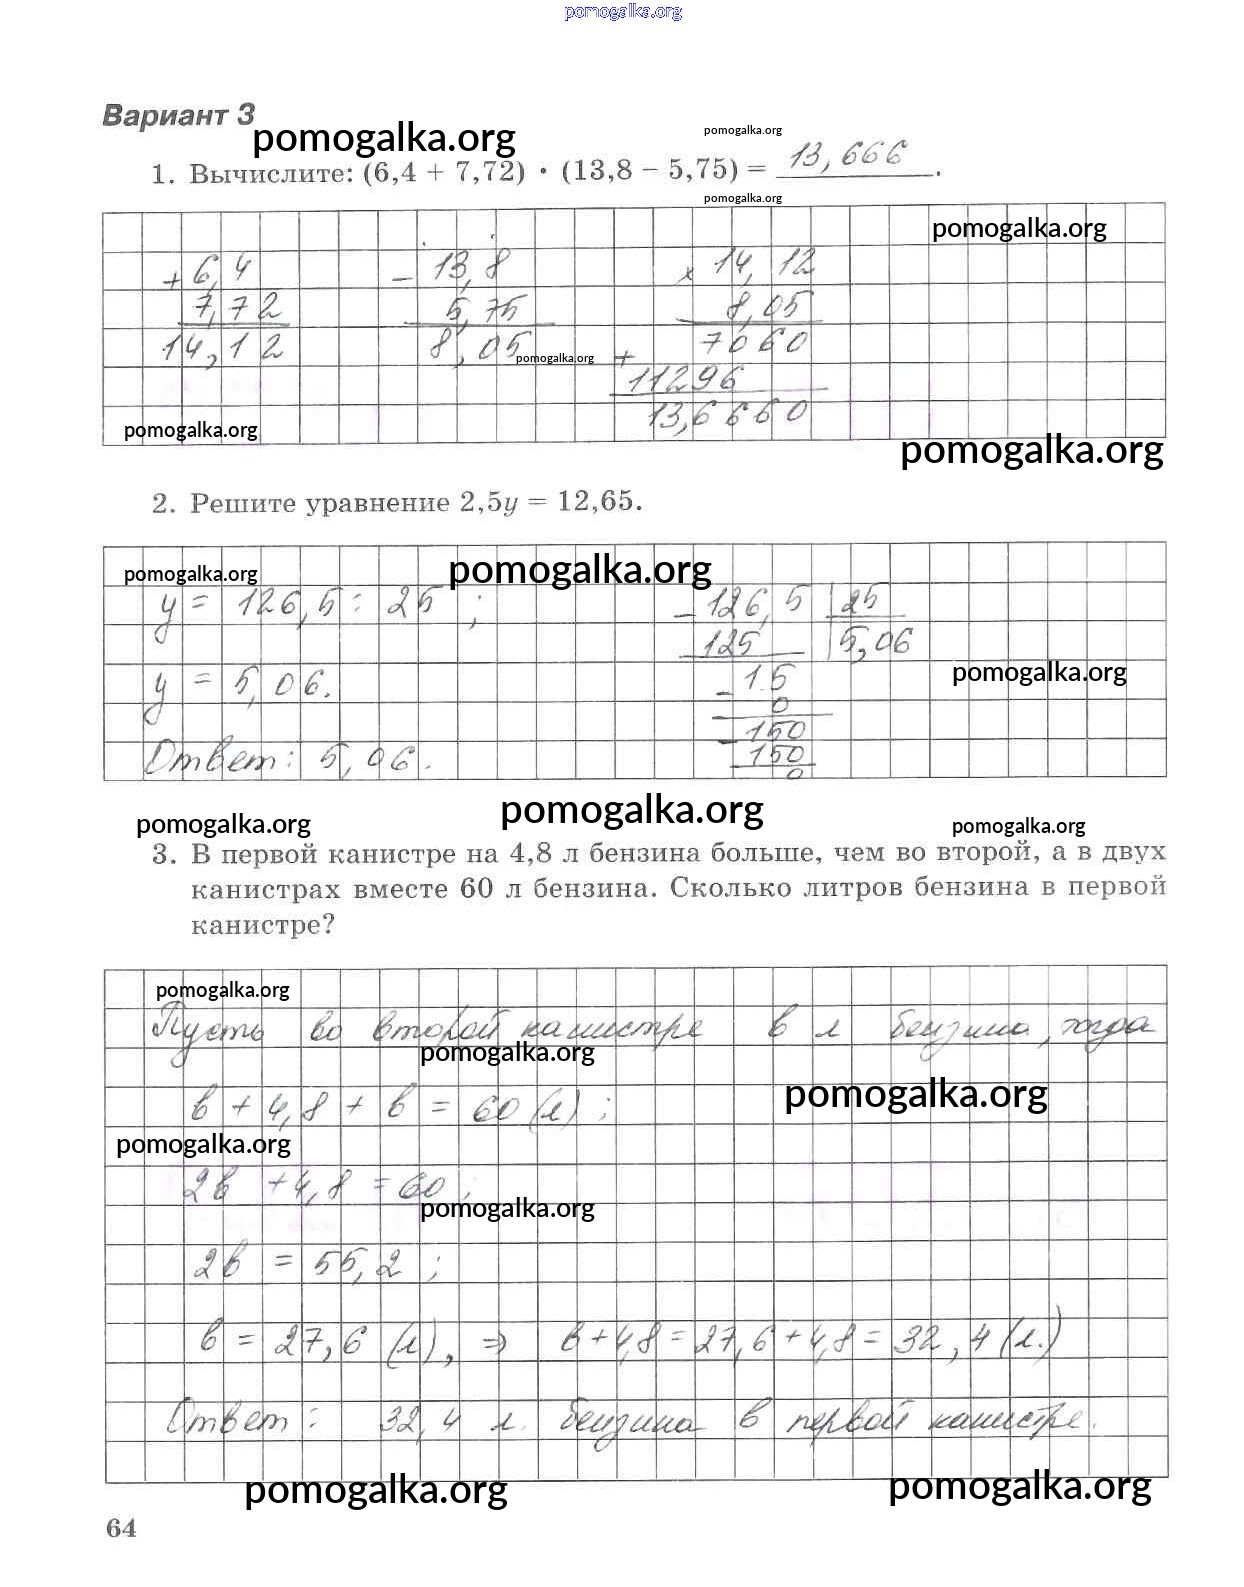 pomogalka.org
Вариант 3
pomogalka.org
pomogalka.org
1. Вычислите: (6,4 + 7,72) · (13,8 – 5,75) = 13,666.
pomogalka.org
pomogalka.org
+ 6,4 – 13,8 x 14,12
7,72 5,75 8,05
14,12 8,05 7060
pomogalka.org
+
11296
13,6660
pomogalka.org
pomogalka.org
2. Решите уравнение 2,5y = 12,65.
pomogalka.org
pomogalka.org
y = 126,5 : 25 ; – 126,5 25
125 5,06
pomogalka.org
y = 5,06. – 15
0
– 150
Ответ: 5,06. 150
0
pomogalka.org
pomogalka.org
pomogalka.org
3. В первой канистре на 4,8 л бензина больше, чем во второй, а в двух
канистрах вместе 60 л бензина. Сколько литров бензина в первой
канистре?
pomogalka.org
Пусть во второй канистре в л бензина, тогда
pomogalka.org
pomogalka.org
в + 4,8 + в = 60 (л) ;
pomogalka.org
2в + 4,8 = 60 ;
pomogalka.org
2в = 55,2 ;
в = 27,6 (л), ⇒ в + 4,8 = 27,6 + 4,8 = 32,4 (л.)
Ответ: 32,4 л. бензина в первой канистре.
pomogalka.org
pomogalka.org
64